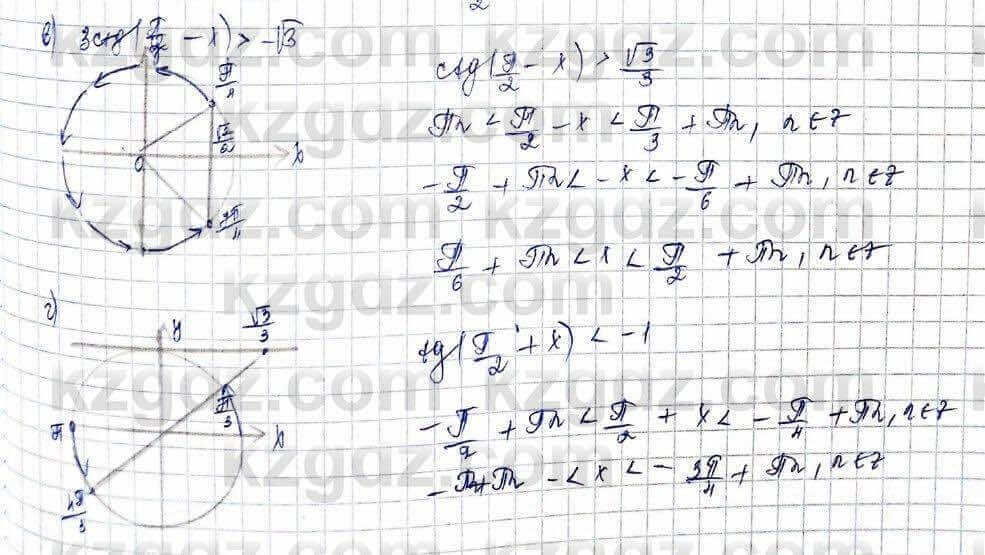 в) 3ctg(π/2 - x) > -√3
π/4
√3/6
0
x
3π/4
ctg(π/2 - x) > √3/3
πn < π/2 - x < π/3 + πn, n∈Z
-π/2 + πn < -x < -π/6 + πn, n∈Z
π/6 + πn < x < π/2 + πn, n∈Z
г)
y
√3/3
π/3
x
π
4π/3
tg(π/2 + x) < -1
-π/2 + πn < π/2 + x < -π/4 + πn, n∈Z
-π+πn - < x < -3π/4 + πn, n∈Z
kzgdz.com